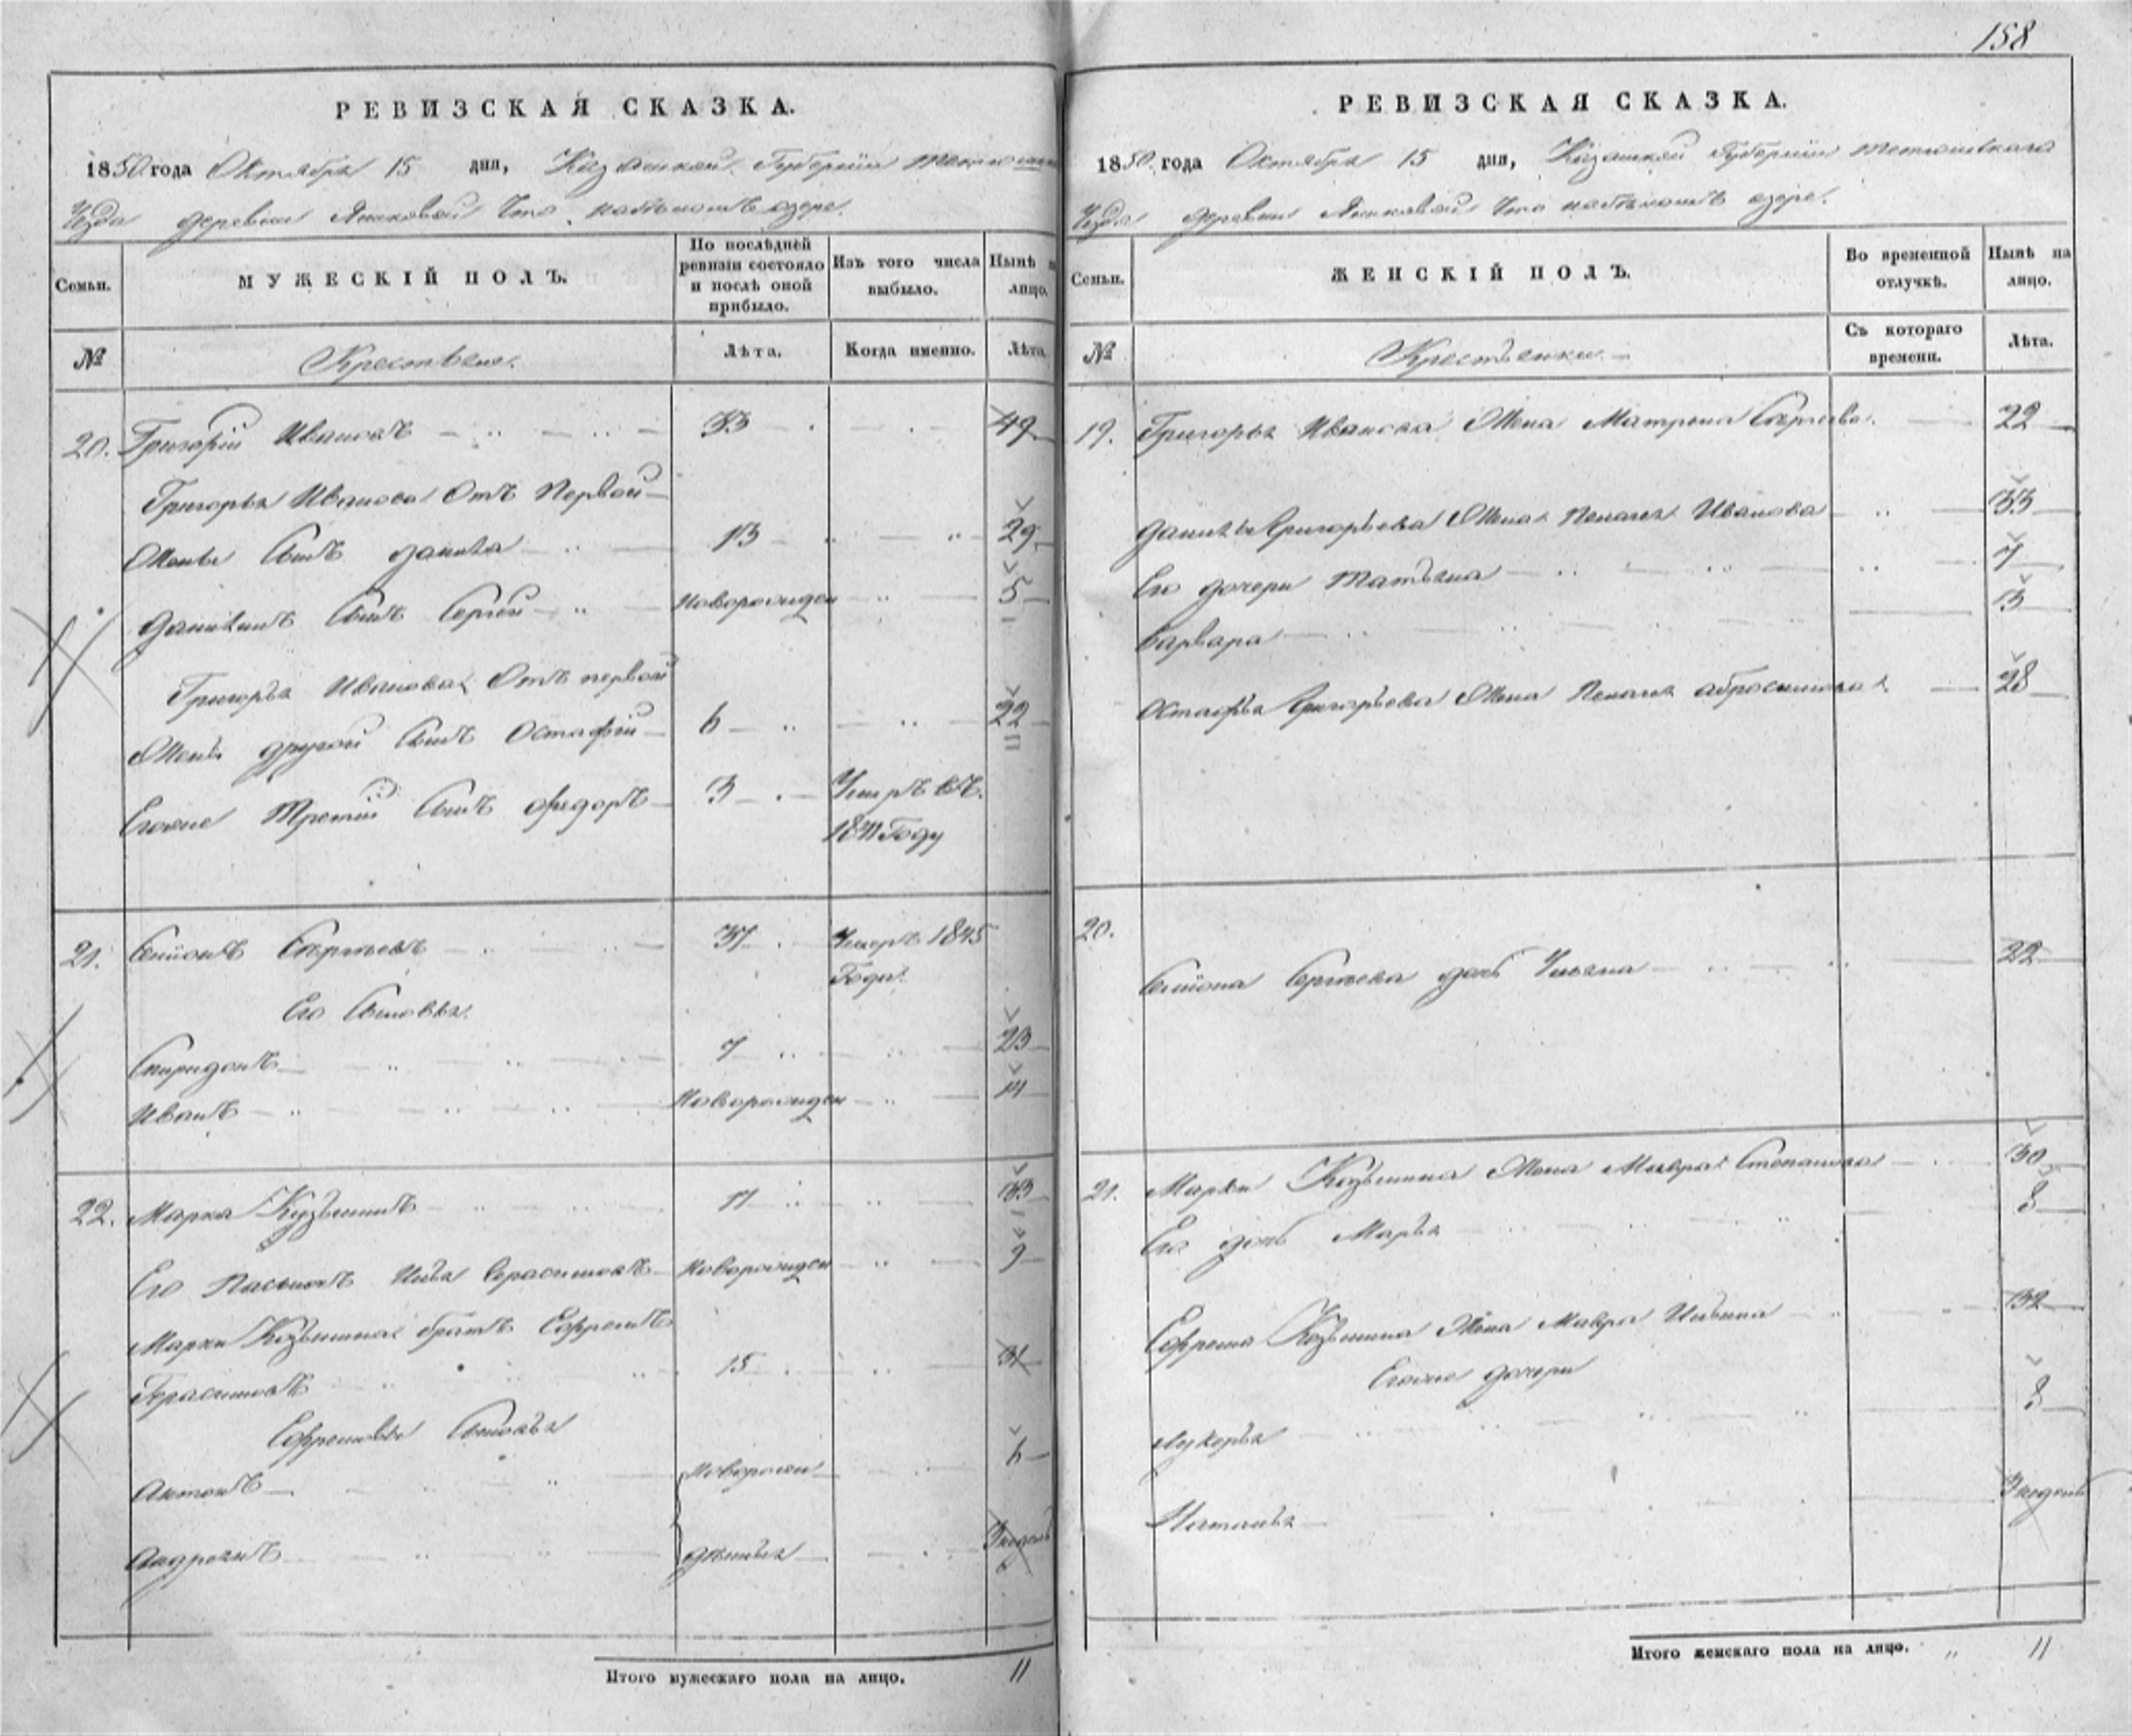 158
РЕВИЗСКАЯ СКАЗКА.
1850 года Октября 15 дня, Казанской Губернии
Уезда деревни Янковой Что озере.
Семьи.
МУЖЕСКІЙ ПОЛЪ.
По послѣдней ревизіи состояло и послѣ оной прибыло.
Изъ того числа выбыло.
Нынѣ на лицо.
№
Крестьяне.
Лѣта.
Когда именно.
Лѣта.
20. Григорій Ивановъ 33 49
Григорья Иванова Отъ Первой
Жены Сынъ Данила 13 29
Данилинъ Сынъ Сергей новорожден 5
Григорья Иванова Отъ первой
Жены другой Сынъ Остафій 6 22
Егоже Третий Сынъ Федоръ 3 Умеръ въ
Году
21. Семионъ Сергѣевъ 37 Умеръ 1845
Года
Его Сыновья
Спиридонъ 7 23
Иванъ Новорожден 14
22. Марка Кузьминъ 17 33
Его Пасынокъ Илья Герасимовъ Новорожден 9
Марки Козьмина братъ Ефремъ
Герасимовъ 15 31
Ефремовы Сыновья
Антонъ Новорож 6
Андреянъ денныя 3 недель
Итого мужескаго пола на лицо. 11
РЕВИЗСКАЯ СКАЗКА.
1850 года Октября 15 дня, Казанской Губернии Тетюшскаго
Уезда деревни Янковой Что озере.
Семьи.
ЖЕНСКІЙ ПОЛЪ.
Во временной отлучкѣ.
Нынѣ на лицо.
№
Крестьянки.
Съ котораго времени.
Лѣта.
19. Григорья Иванова Жена Матрена Сергеева 22
Данилы Григорьева Жена Пелагея Иванова 33
Его дочери Татьяна 7
Варвара 3
Остафья Григорьева Жена Пелагея Абросимова 28
20.
Семиона Сергѣева дочь Ульяна 22
21. Марки Козьмина Жена Мавра Степанова 30
Его дочь Марья 8
Ефрема Козьмина Жена Мавра Ильина 32
Егоже дочери
Лукерья 8
Наталья 3 недель
Итого женскаго пола на лицо. 11